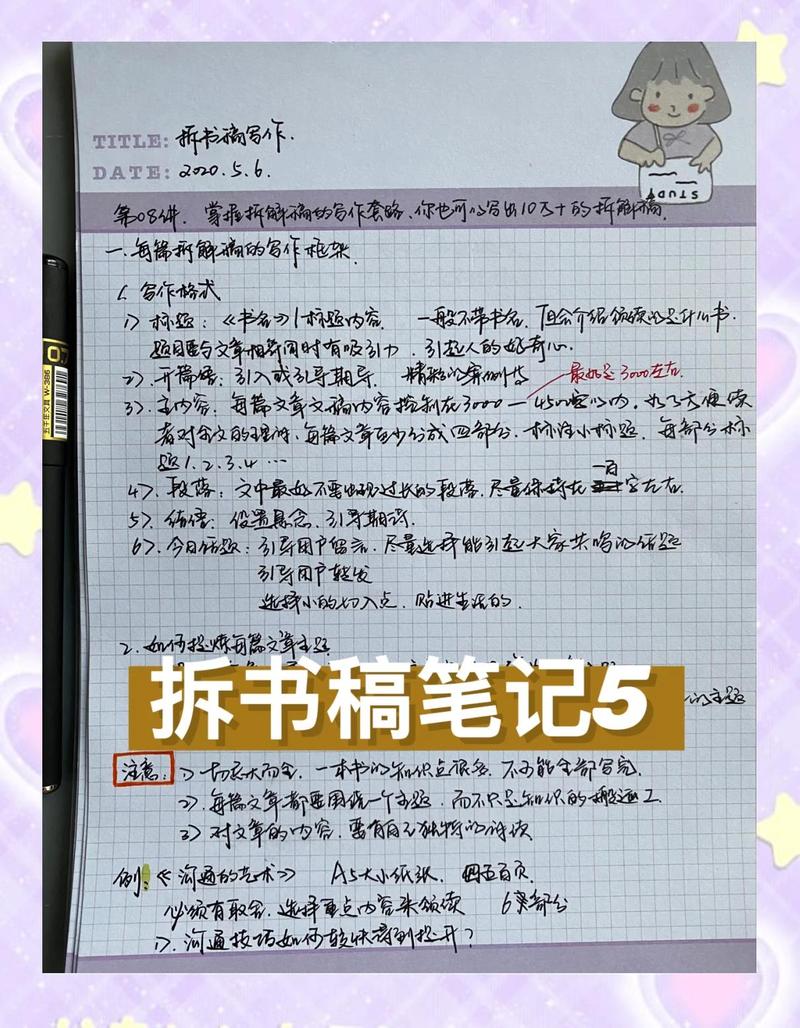 TITLE: 拆书稿写作.
DATE: 2020.5.6.
STUDY
第08讲. 掌握拆解稿的写作套路,你也可以写出10万+的拆解稿.
一.每篇拆解稿的写作框架.
1. 写作格式
1) 标题:《书名》|标题内容. 一般不带书名,但会介绍领读的是什么书.
题目要与文章相符同时有吸引力,引起人的好奇心.
2). 开篇语:引入或引导期待. 精彩的案例
最好是3000左右.
3). 主内容. 每篇文章文稿内容控制在3000—4500字以内,为了方便读
者对全文的理解,每篇文章至少分成四部分,标注小标题,每部分标
题1.2.3.4…
一百
4). 段落:文中最好不要出现过长的段落,尽量保持在字左右.
5). 结语:设置悬念,引导期待.
6). 今日话题:引导用户留言,尽量选择能引起大家共鸣的话题
引导用户转发
选择小的切入点,贴近生活的.
2.如何提炼每篇文章主题
的主题
拆书稿笔记5
注意: 1) 切忌大而全,一本书的知识点很多,不可能全部写完.
2). 每篇文章都要围绕一个主题,而不只是知识的搬运工.
3) 对文章的内容,要有自己独特的解读
例:《沟通的艺术》 A5大小纸张, 四五百页.
必须有取舍,选择重点内容来领读 6部分
1). 沟通技巧如何较快得到提升?
07
五千年文具 W-396